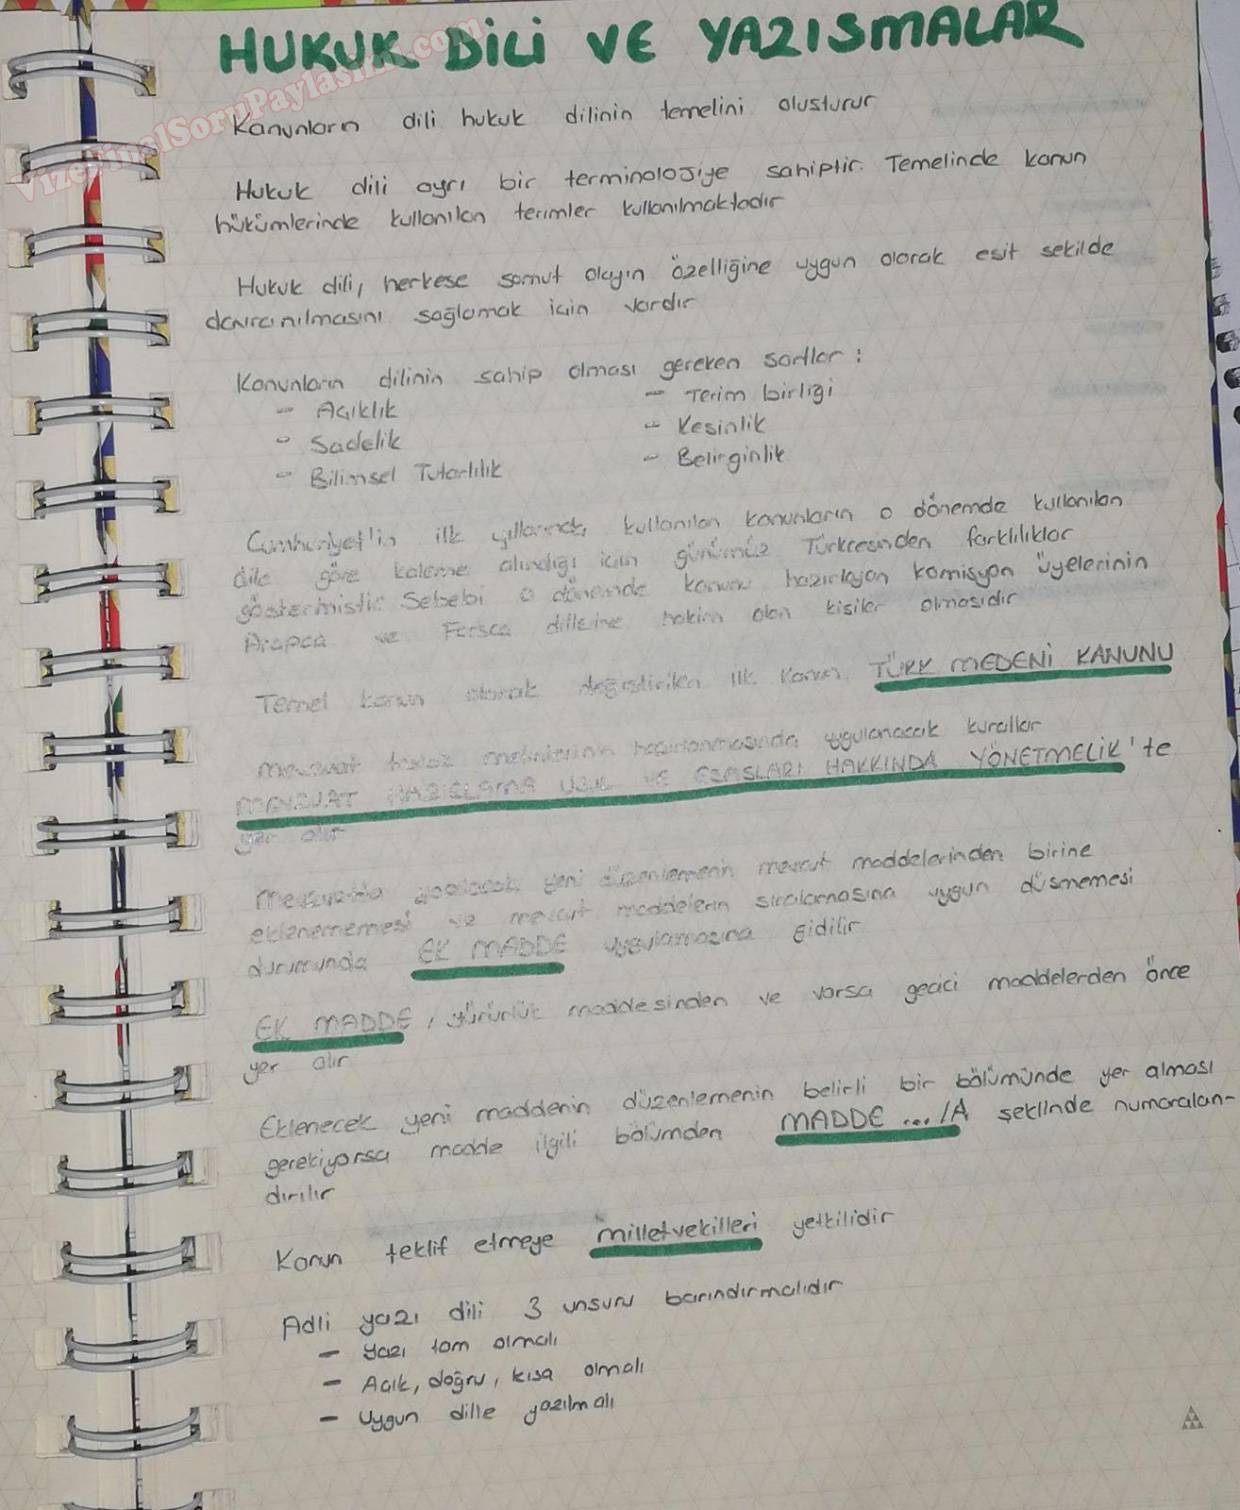 HUKUK DİLİ VE YAZISMALAR
VizeFinalSoruPaylasimi.com
Kanunların dili hukuk dilinin temelini olusturur
Hukuk dili ayrı bir terminolojiye sahiptir. Temelinde kanun
hükümlerinde kullanılan terimler kullanılmaktadır
Hukuk dili, herkese somut olayın özelliğine uygun olarak esit sekilde
davranılmasını sağlamak icin vardır
Kanunların dilinin sahip olması gereken sartlar :
- Acıklık
- Terim birliği
- Sadelik
- Kesinlik
- Bilimsel Tutarlılık
- Belirginlik
Cumhuriyet'in ilk yıllarında kullanılan kanunların o dönemde kullanılan
dile göre kaleme alındığı icin günümüz Türkcesinden farklılıklar
göstermistir. Sebebi o dönemde kanunu hazırlayan komisyon üyelerinin
Arapca ve Farsca dillerine hakim olan kisiler olmasıdır
Temel kanun olarak değistirilen ilk kanun TÜRK MEDENİ KANUNU
Mevzuat taslak metinlerinin hazırlanmasında uygulanacak kurallar
MEVZUAT HAZIRLAMA USUL VE ESASLARI HAKKINDA YÖNETMELİK'te
yer alır
Mevzuatta yapılacak yeni düzenlemenin mevcut maddelerinden birine
eklenememesi ve mevcut maddelerin sıralamasına uygun düsmemesi
durumunda EK MADDE uygulamasına gidilir
EK MADDE, yürürlük maddesinden ve varsa gecici maddelerden önce
yer alır
Eklenecek yeni maddenin düzenlemenin belirli bir bölümünde yer alması
gerekiyorsa madde ilgili bölümden MADDE .../A seklinde numaralan-
dırılır
Kanun teklif etmeye milletvekilleri yetkilidir
Adli yazı dili 3 unsuru barındırmalıdır
- Yazı tam olmalı
- Acık, doğru, kısa olmalı
- Uygun dille yazılmalı